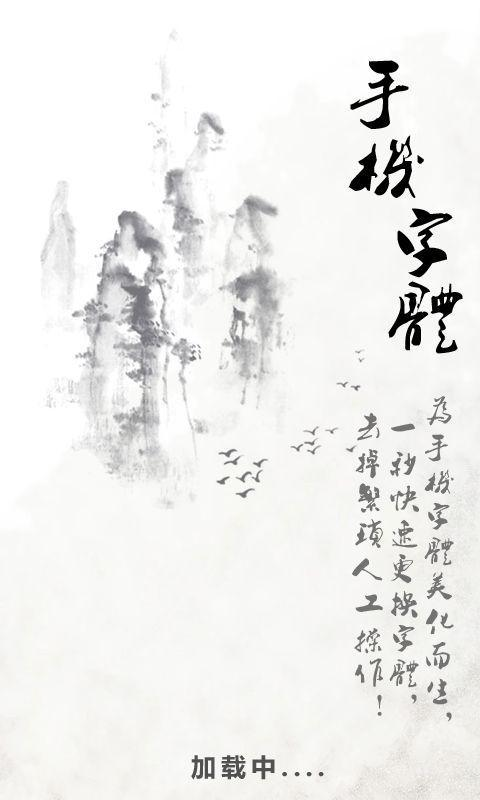 手機字體
為手機字體美化而生，
一秒快速更换字體，
去掉繁瑣人工操作！
加载中....